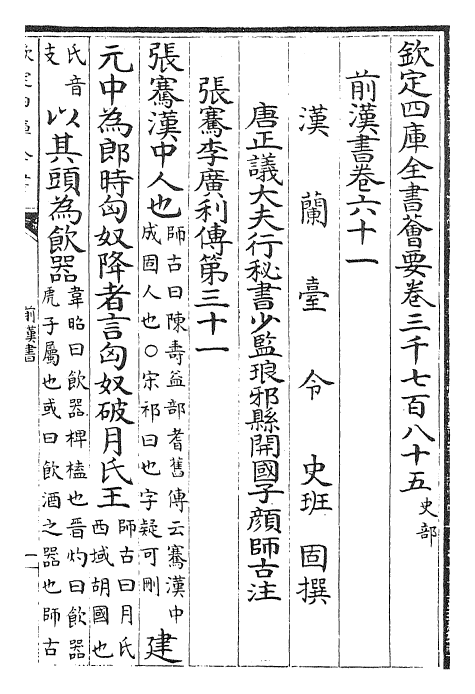 欽定四庫全書薈要卷三千七百八十五 史部
前漢書卷六十一
漢蘭臺令史班固撰
唐正議大夫行秘書少監琅邪縣開國子顏師古注
張騫李廣利傳第三十一
張騫漢中人也 師古曰陳壽益部耆舊傳云騫漢中成固人也○宋祁曰也字疑可刪 建
元中為郎時匈奴降者言匈奴破月氏王 師古曰月氏西域胡國也
氏音支 以其頭為飲器 韋昭曰飲器椑榼也晉灼曰飲器虎子屬也或曰飲酒之器也師古
前漢書
一